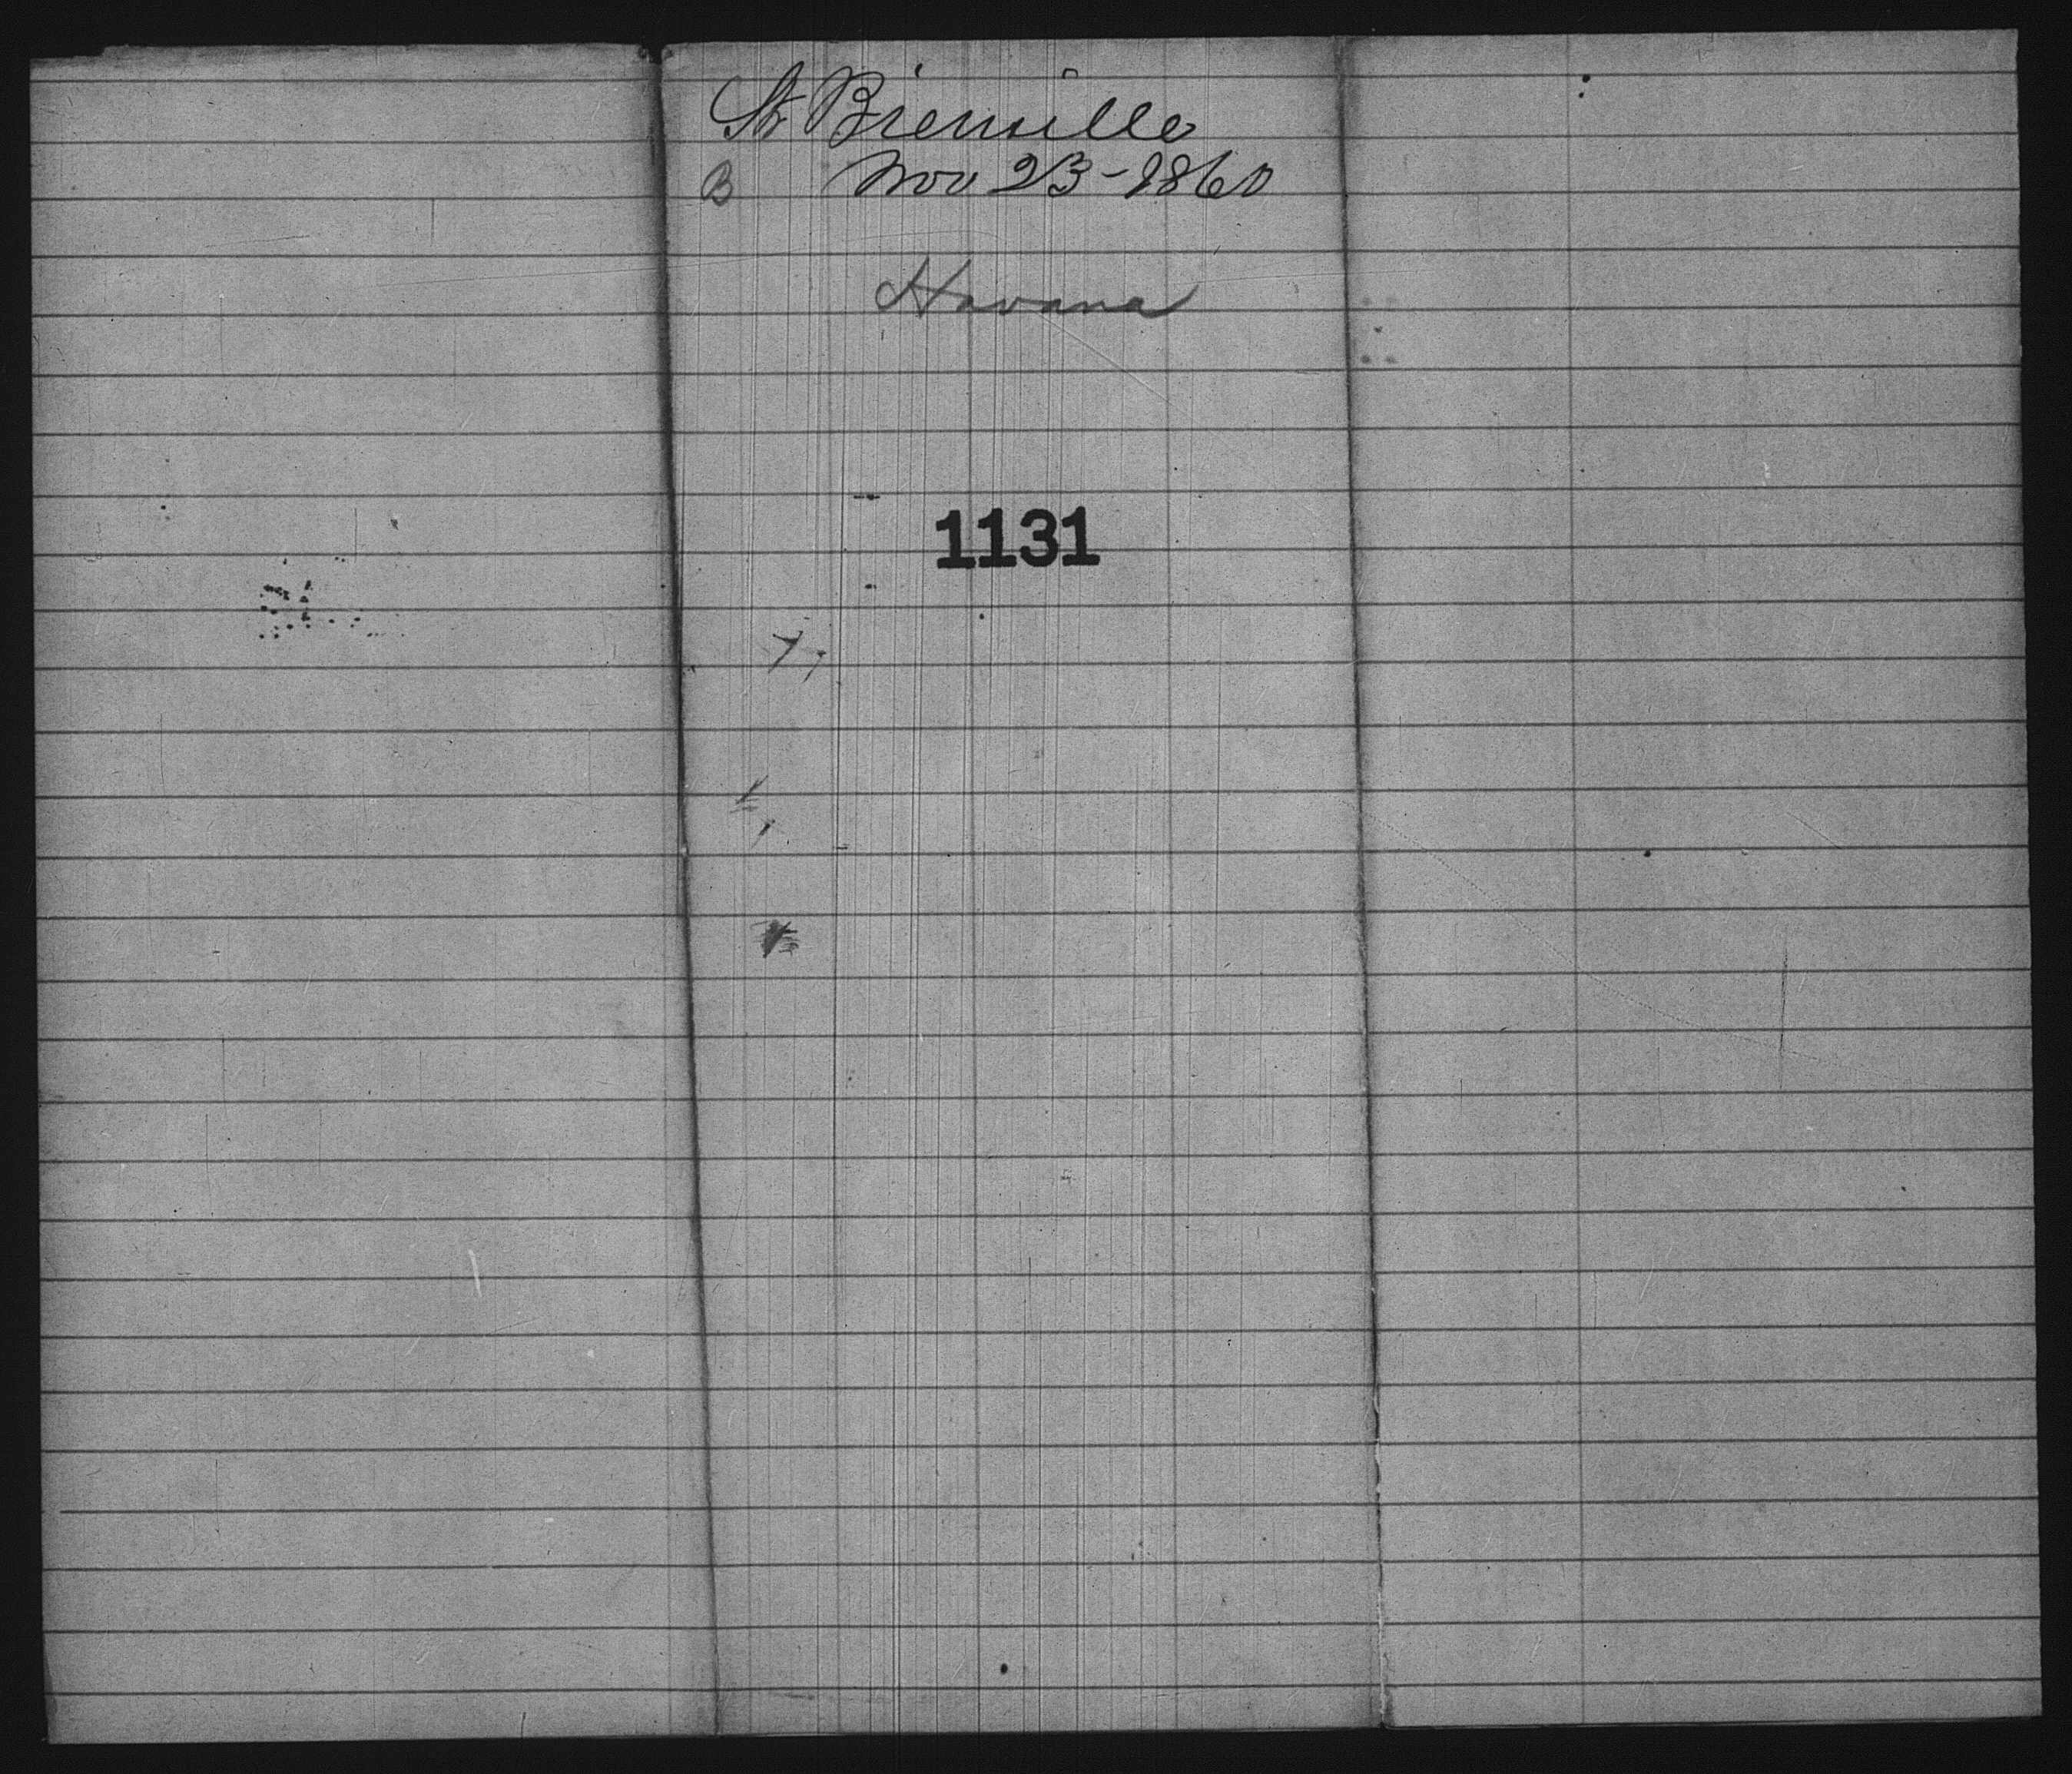 St Bienville
B Nov 23-1860
Havana
1131